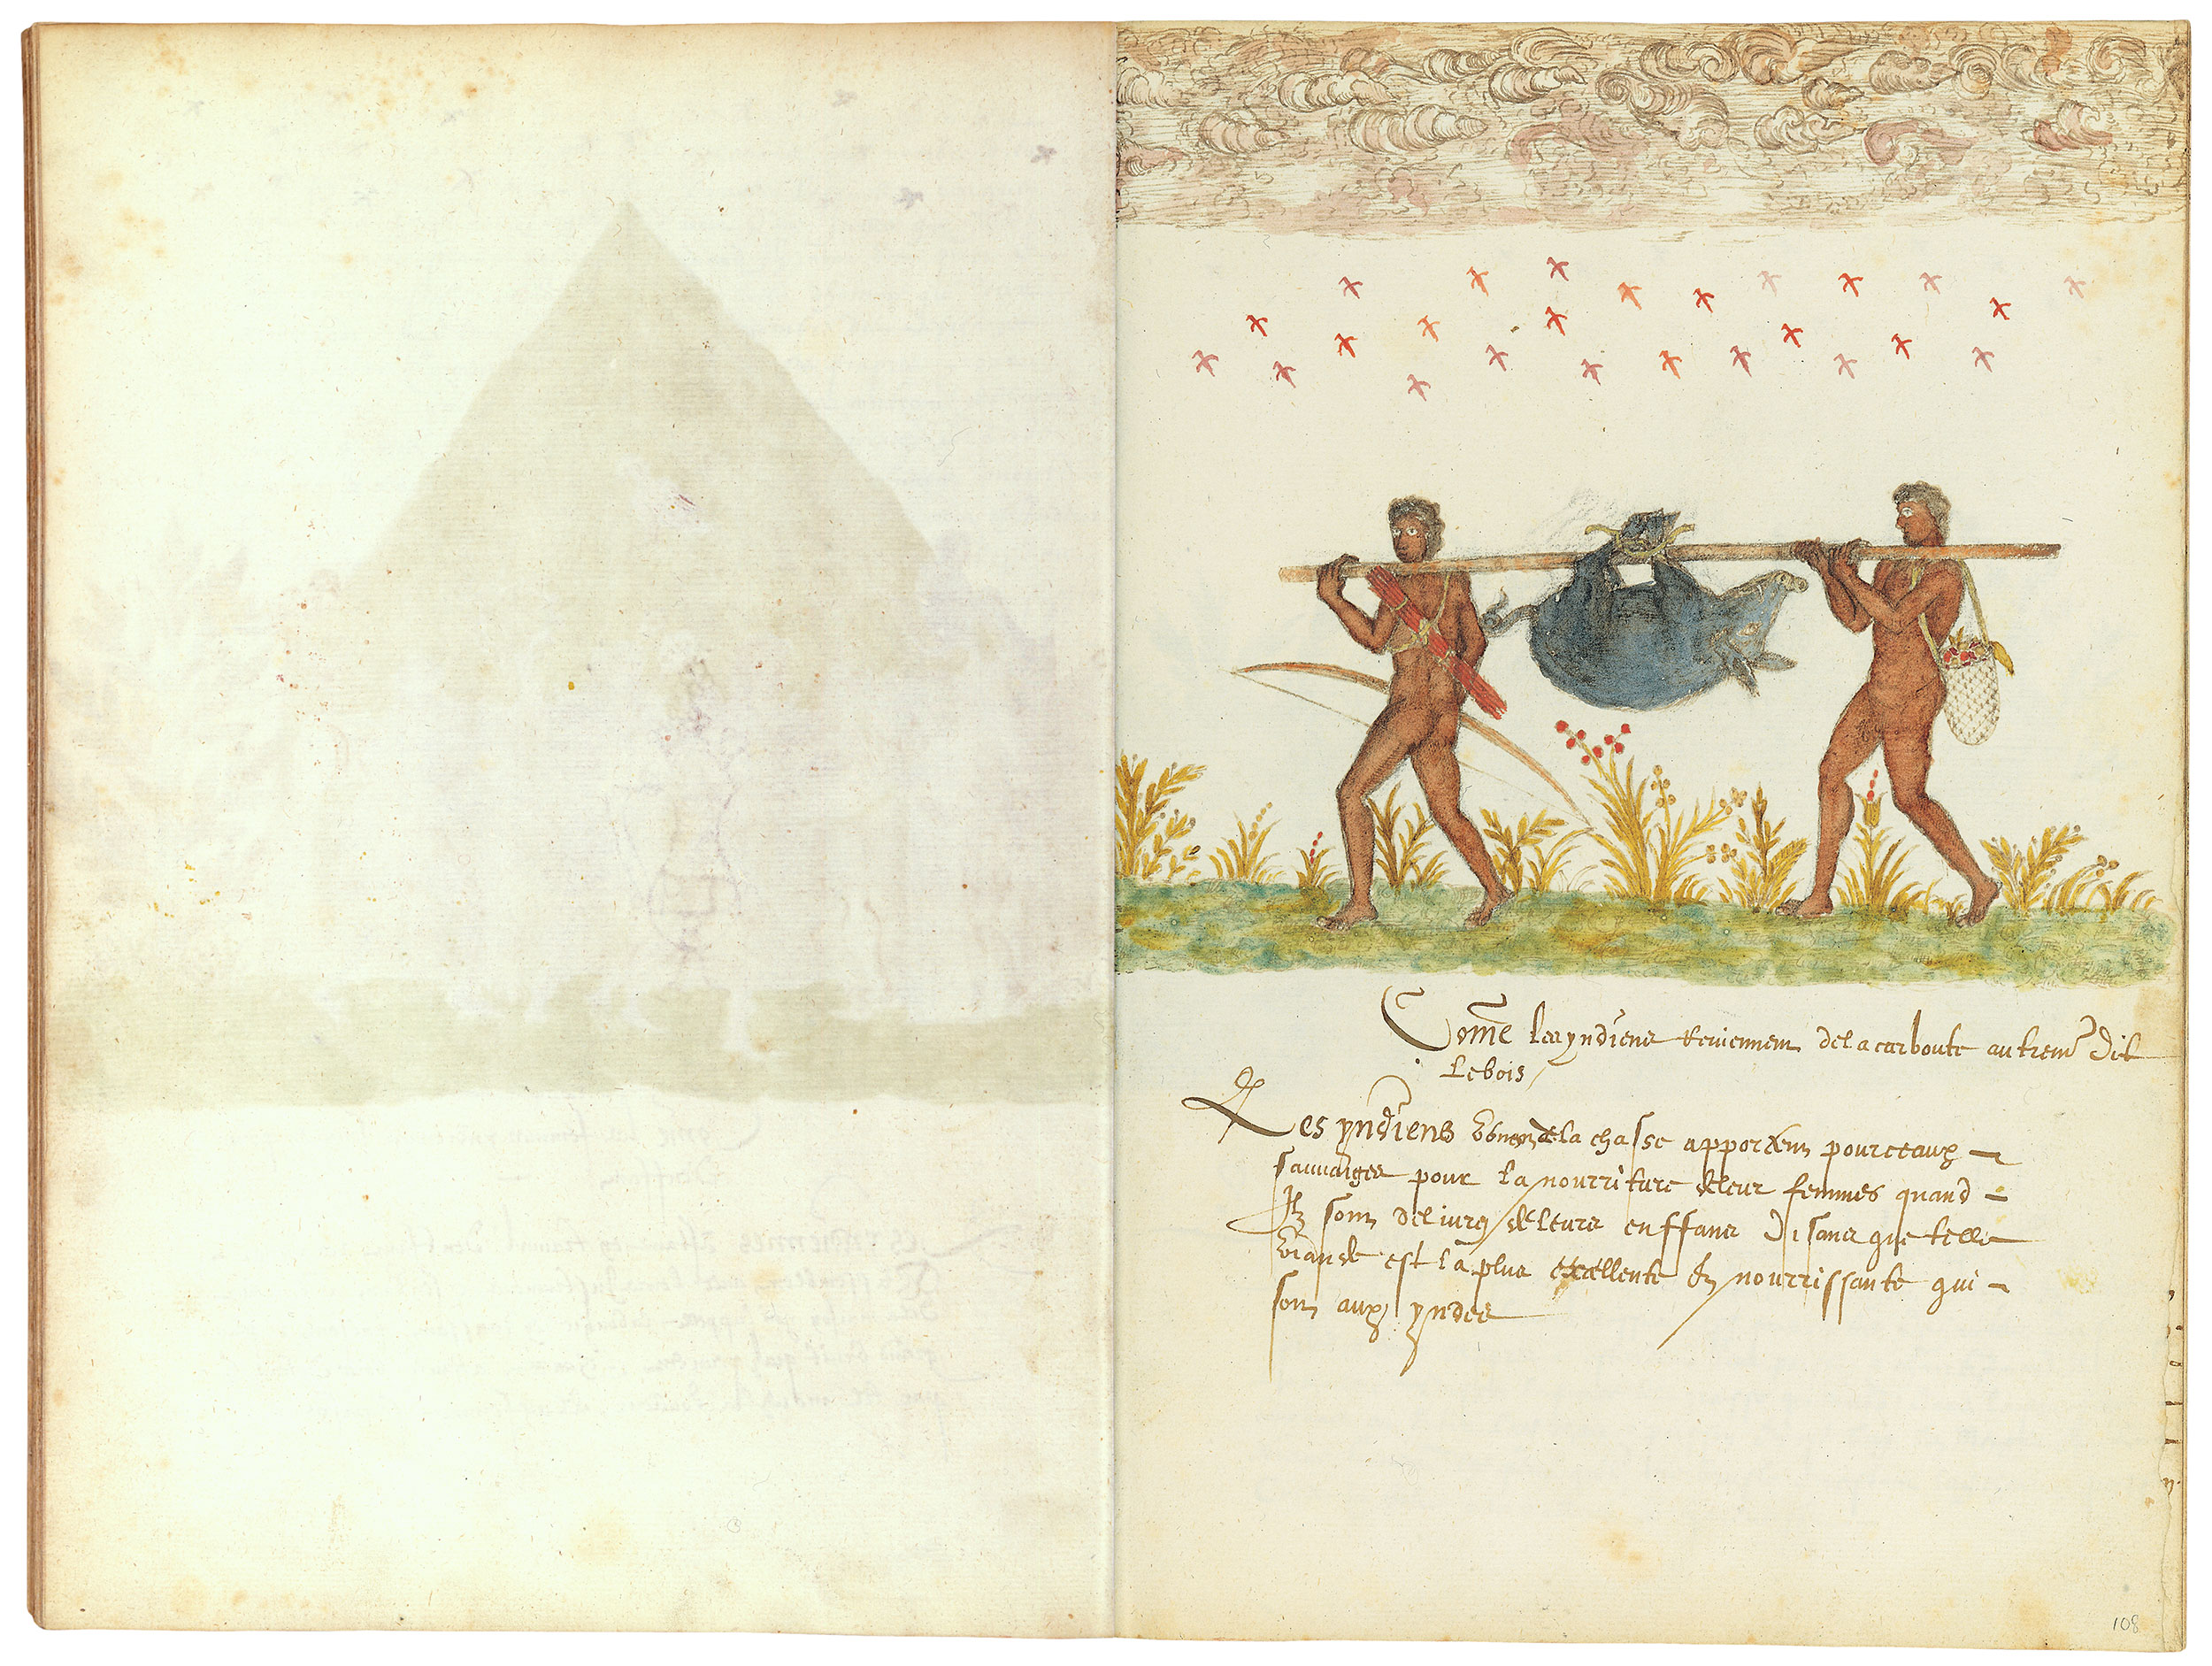 Come les yndiens Reviennent de la carboute autremt dit
le bois
Les yndiens venant de la chasse apportent pourceaux
sauvaiges pour la nourriture de leur femmes quand
Ilz sont delivres de leurs enffans Disans que telle
viande est la plus excellente & nourrissante qui
sont aux yndes
108